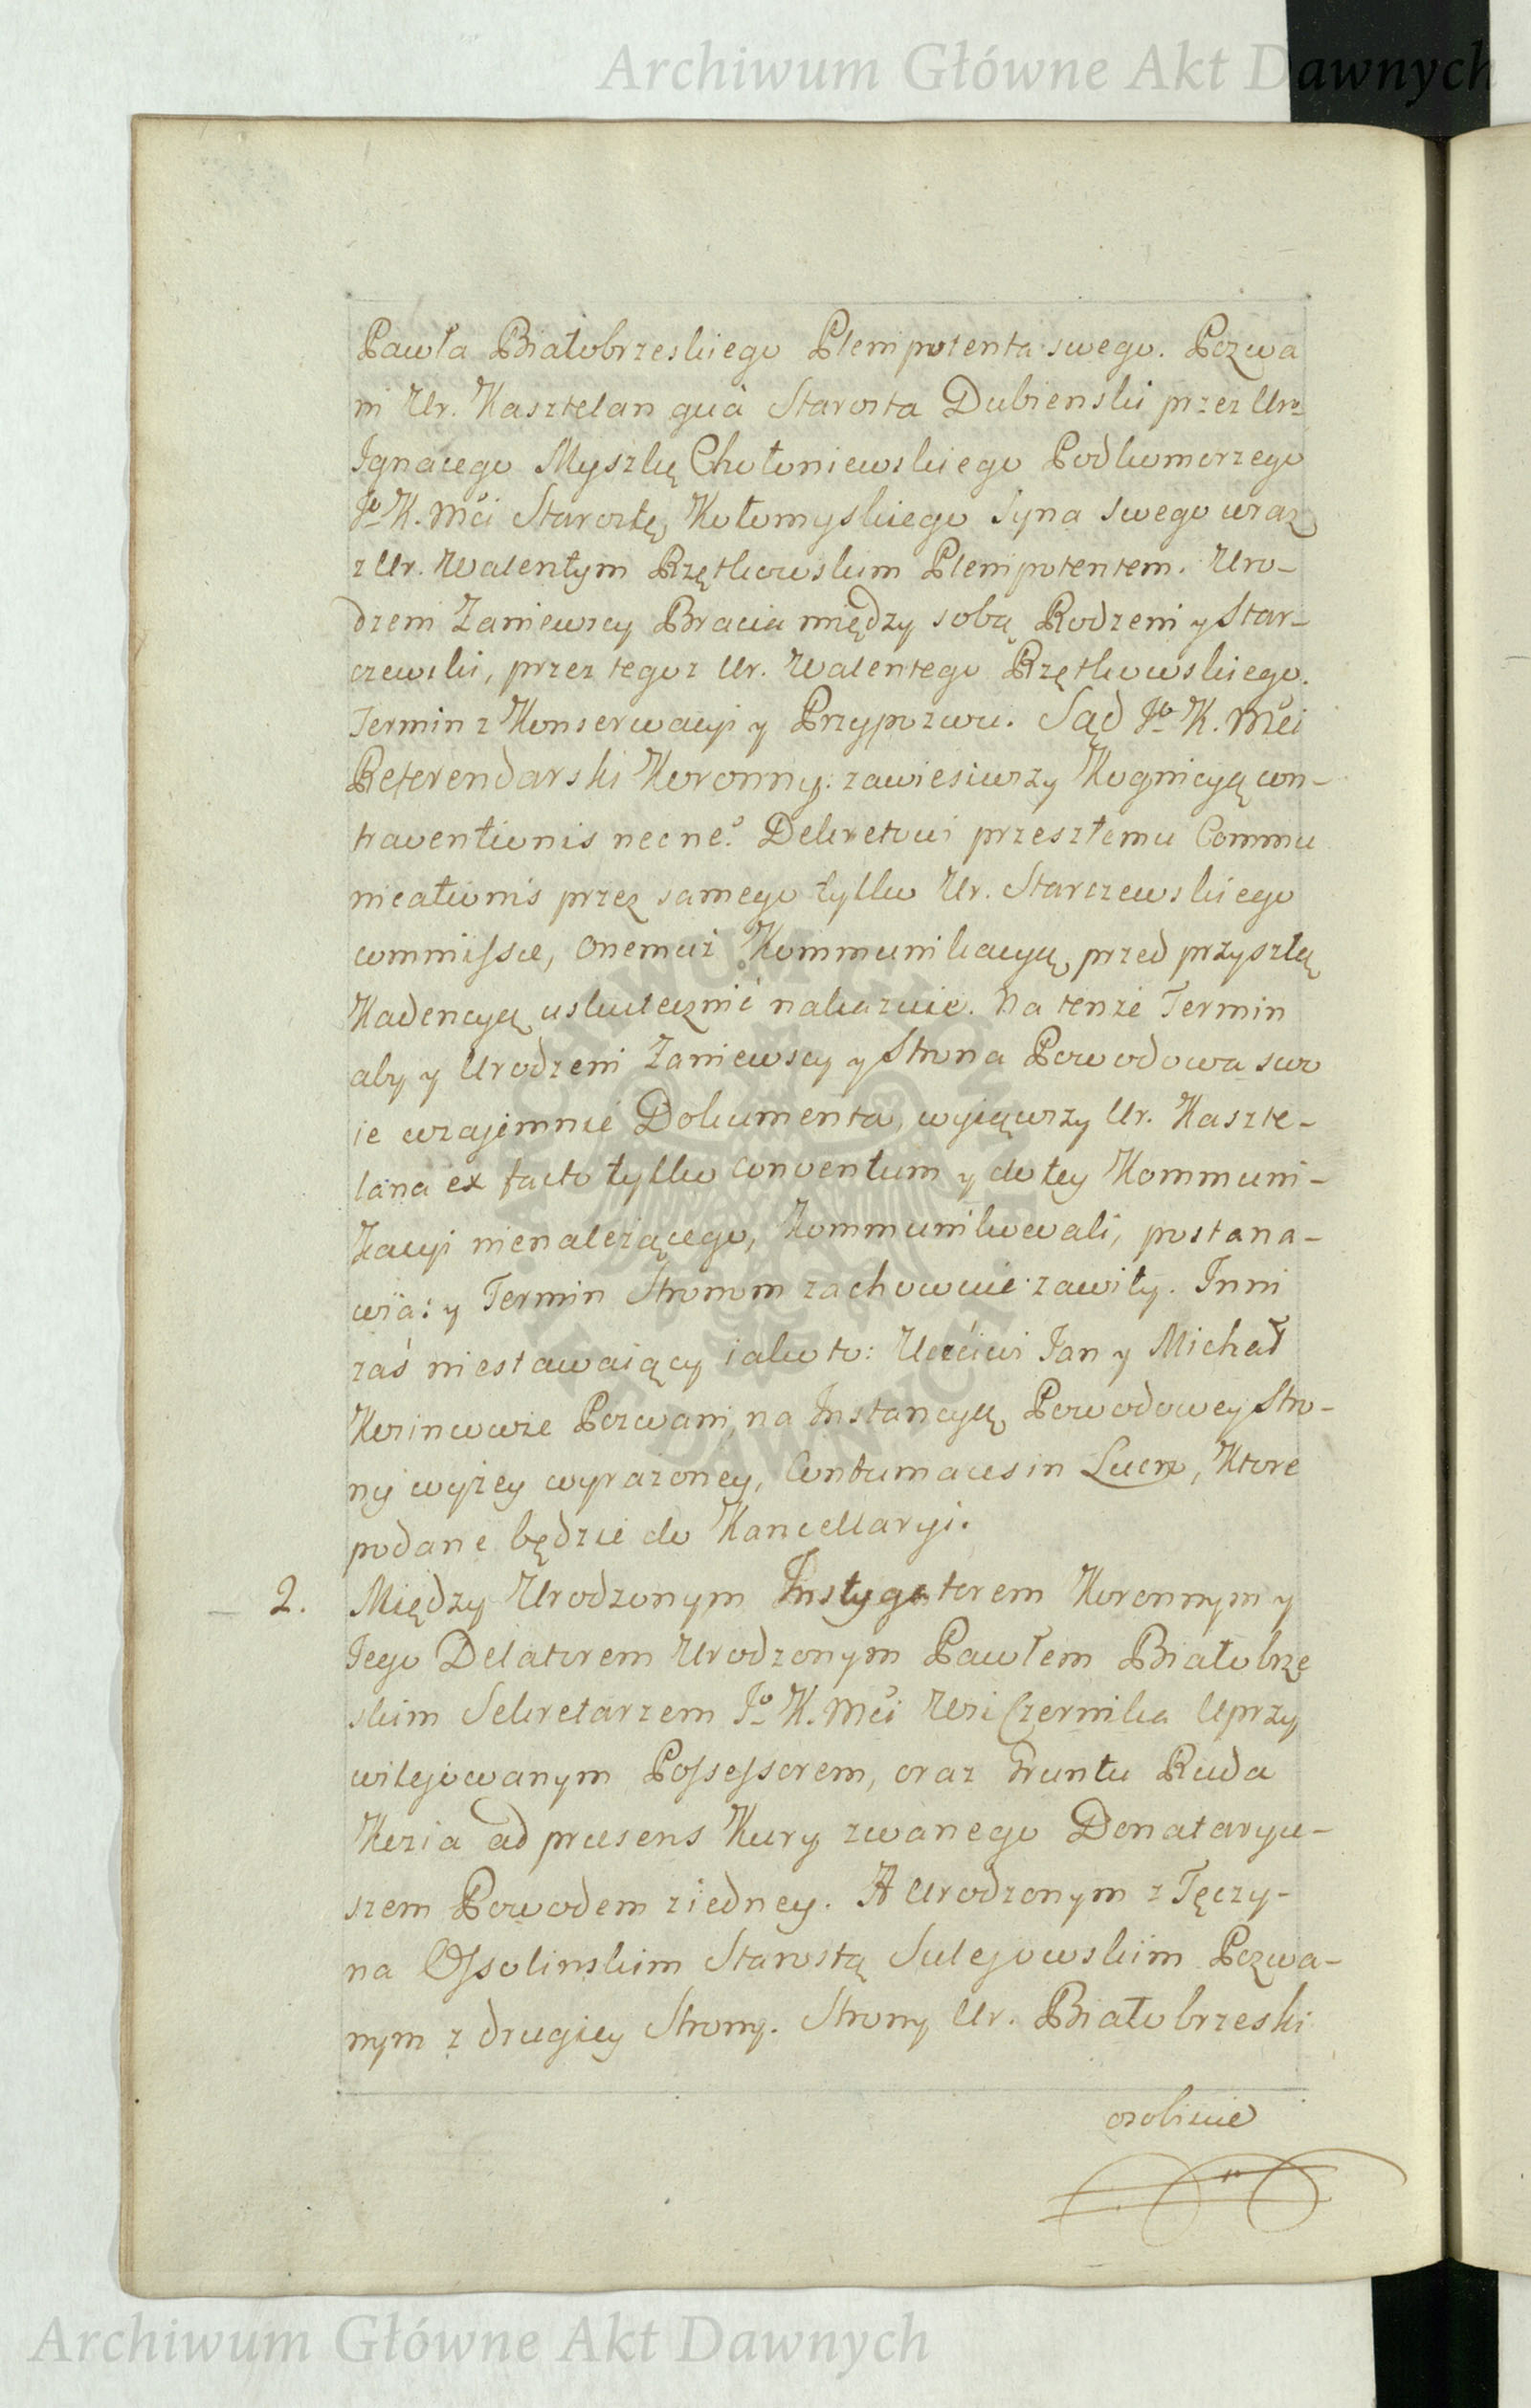 Archiwum Główne Akt Dawnych
Pawła Białobrzeskiego Plenipotenta swego. Pozwa
ni Ur. Kasztelan quà Starosta Dubienski przez Uro
Ignacego Myszkę Chołoniewskiego Podkomorzego
Jo K. Mći Starostę Kołomyskiego Syna swego wraz
z Ur. Walentym Rzętkowskim Plenipotentem. Uro-
dzeni Zaniewscy Bracia między sobą Rodzeni y Star-
czewski, przez tegoz Ur. Walentego Rzętkowskiego.
Termin z Konserwacyi y Przypozwu. Sąd Jo K. Mći
Referendarski Koronny: zawiesiwszy Kognicyą con-
traventionis nec ne? Dekretowi przeszłemu Commu
nicationis przez samego tylko Ur. Starczewskiego
commissae, onemuż Kommunikacyą przed przyszłą
Kadencyą uskutecznić nakazuie. Na tenże Termin
aby y Urodzeni Zaniewscy y Strona Powodowa swo
ie wzajemnie Dokumenta, wyiąwszy Ur. Kaszte-
lana ex facto tylko conventum y do tey Kommuni-
kacyi nienależącego, Kommunikowali, postana-
wia: y Termin Stronom zachowuie zawity. Inni
zaś niestawaiący iako to: Uczciwi Jan y Michał
Kozinowie Pozwani, na Instancyą Powodowey Stro-
ny wyżey wyrażoney, Contumaces in Lucro, Ktore
podane będzie do Kancellaryi.
2. Między Urodzonym Instygatorem Koronnym y
Jego Delatorem Urodzonym Pawłem Białobrze
skim Sekretarzem Jo K. Mći Wsi Czernika Uprzy
wilejowanym Possessorem, oraz Gruntu Ruda
Kozia ad praesens Kury zwanego Donataryu-
szem Powodem z iedney. A Urodzonym z Tęczy-
na Ossolinskim Starostą Sulejowskim Pozwa-
nym z drugiey Strony. Strony Ur. Białobrzeski
osobiscie
Archiwum Główne Akt Dawnych